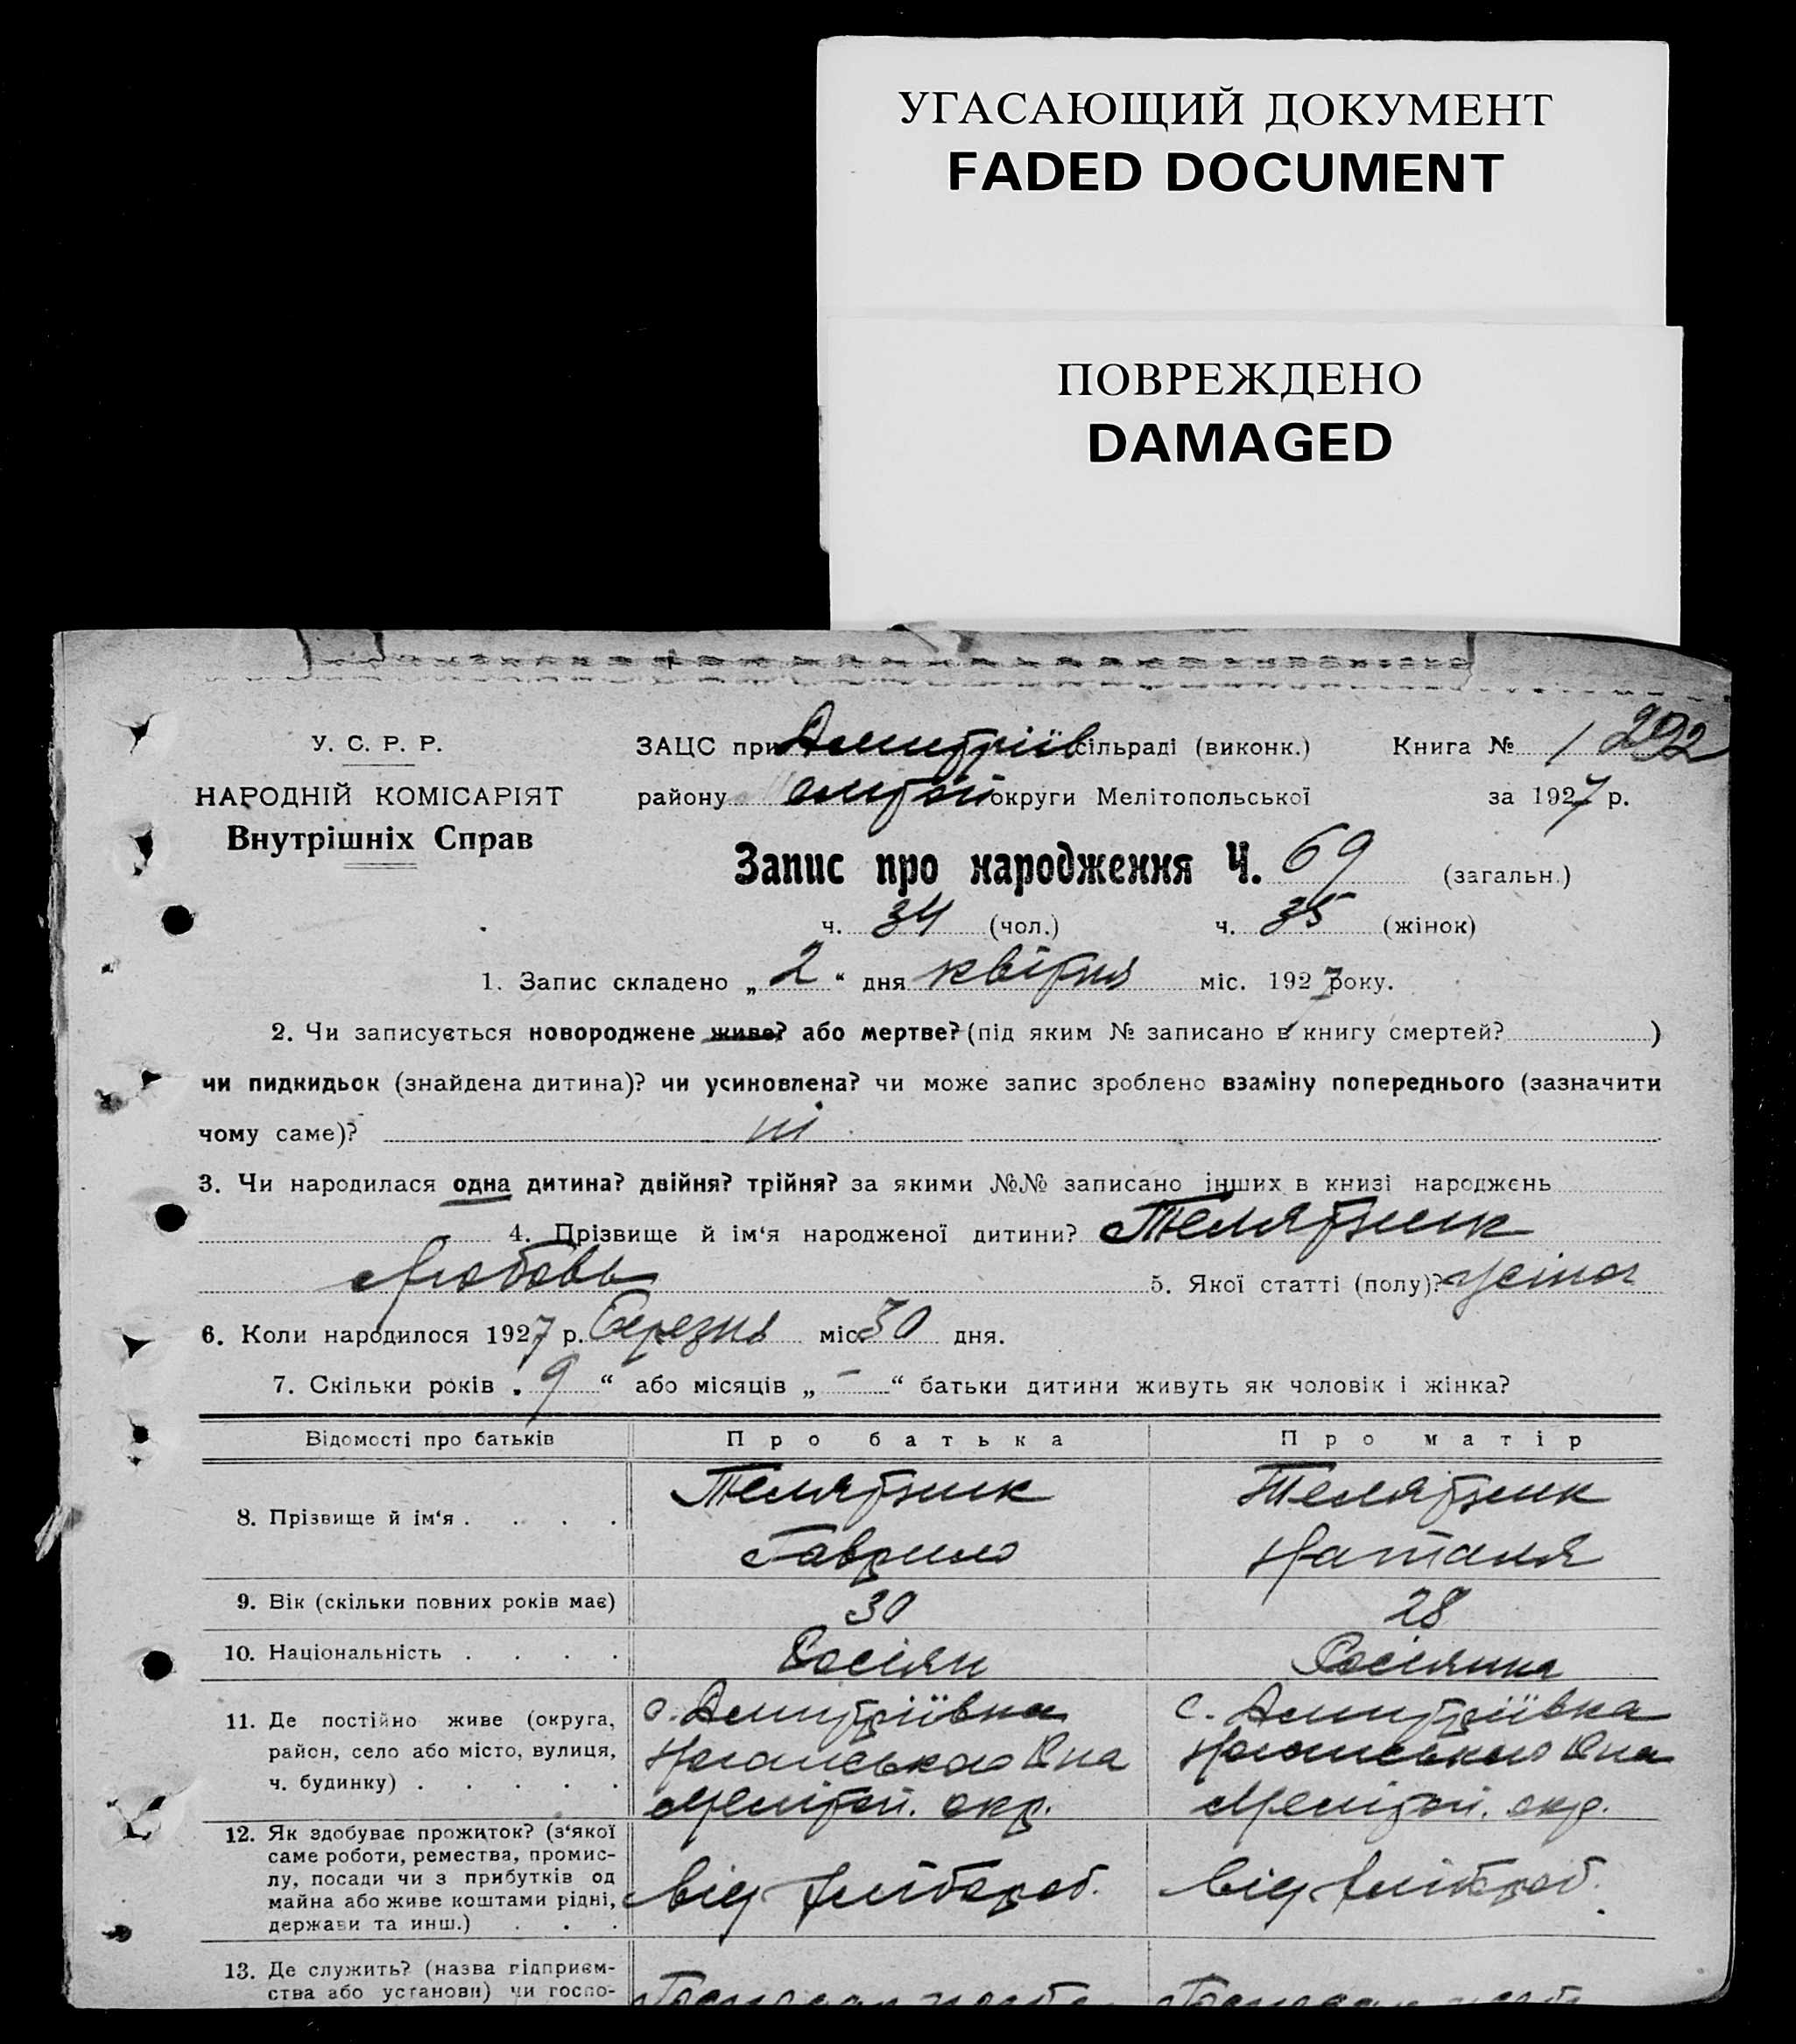 УГАСАЮЩИЙ ДОКУМЕНТ
FADED DOCUMENT
ПОВРЕЖДЕНО
DAMAGED
У. С. Р. Р.
НАРОДНІЙ КОМІСАРІЯТ
Внутрішніх Справ
ЗАЦС при Дмитріїв сільраді (виконк.) Книга № 1 292
району округи Мелітопольської за 1927 р.
Запис про народження Ч. 69 (загальн.)
ч. 34 (чол.) ч. 35 (жінок)
1. Запис складено „ 2 “ дня квітня міс. 1927 року.
2. Чи записується новороджене живе? або мертве? (під яким № записано в книгу смертей? )
чи пидкидьок (знайдена дитина)? чи усиновлена? чи може запис зроблено взаміну попереднього (зазначити
чому саме)? ні
3. Чи народилася одна дитина? двійня? трійня? за якими №№ записано інших в книзі народжень
4. Прізвище й ім‘я народженої дитини? Телятник
Любовь 5. Якої статті (полу)? жіноч
6. Коли народилося 1927 р. Березнь міс. 30 дня.
7. Скільки років „ 9 “ або місяців „ – “ батьки дитини живуть як чоловік і жінка?
Відомості про батьків Про батька Про матір
8. Прізвище й ім‘я . . . . Телятник Телятник
Гаврило Наталія
9. Вік (скільки повних років має) 30 28
10. Національність . . . . Росіян Росіянка
11. Де постійно живе (округа, с. Дмитріївка с. Дмитріївка
район, село або місто, вулиця, Ногайського Р на Ногайського Р на
ч. будинку) . . . . . Мелітоп. окр. Мелітоп. окр.
12. Як здобуває прожиток? (з‘якої
саме роботи, ремества, промис-
лу, посади чи з прибутків од
майна або живе коштами рідні, від хлібороб. від хліброб.
держави та инш.) . . .
13. Де служить? (назва підприєм-
ства або установи) чи госпо-